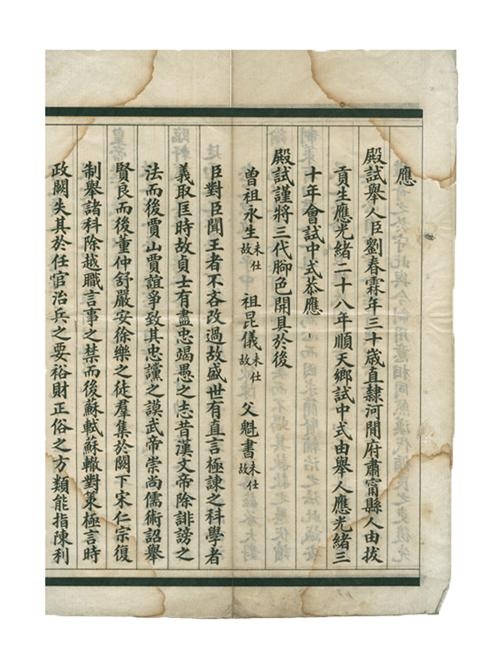 應
殿試舉人臣劉春霖年三十歲直隸河間府肅甯縣人由拔
貢生應光緒二十八年順天鄉試中式由舉人應光緒三
十年會試中式恭應
殿試謹將三代腳色開具於後
曾祖永生未仕故 祖昆儀未仕故 父魁書未仕故
臣對臣聞王者不吝改過故盛世有直言極諫之科學者
義取匡時故貞士有盡忠竭愚之志昔漢文帝除誹謗之
法而後賈山賈誼爭致其忠讜之謨武帝崇尚儒術詔舉
賢良而後董仲舒嚴安徐樂之徒羣集於闕下宋仁宗復
制舉諸科除越職言事之禁而後蘇軾蘇轍對策極言時
政闕失其於任官治兵之要裕財正俗之方類能指陳利